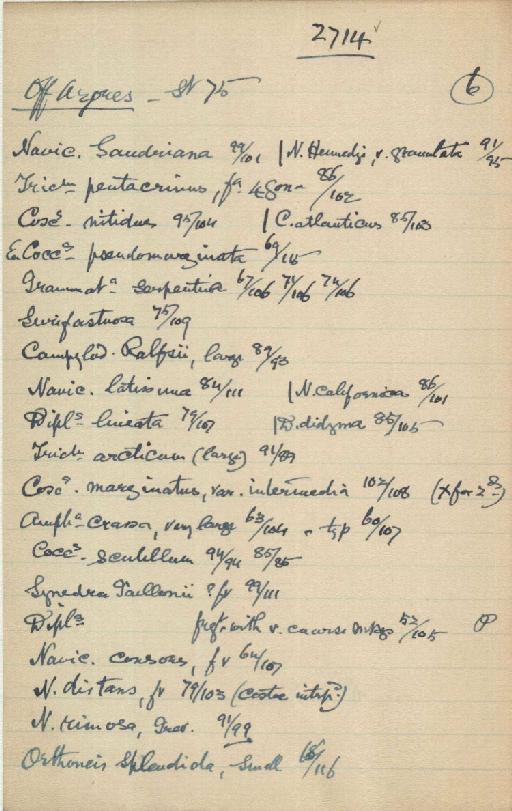 2714
Off Azores - St 75 6
Navic. Gaudiniana 99/101 | N. Hennedyi, v. granulata 91/95
Tric. pentacrinus, fa. 4gon 86/102
Cosc. nitidus 95/104 | C. atlanticus 85/103
Cocc. pseudomarginata 69/115
Grammat. serpentina 67/106 71/106 74/106
Suri fastuosa 75/109
Campylod. Ralfsii, large 89/93
Navic. latissima 84/111 | N. californica 86/101
Dipl. lineata 79/107 | D. didyma 85/105
Trich. arcticum (large) 91/89
Cosc. marginatus, var. intermedia 102/108
Amph. crassa, very large 63/104 - typ 60/107
Cocc. scutellum 94/94 85/85
Synedra ? fv 99/111
Dipl. frgt. with v. coarse mkgs 52/105
Navic. consors, fv 64/107
N. distans, fv 79/103 (costae intrp.)
N. rimosa, Grev. 91/99
Orthoneis splendida, small 68/116